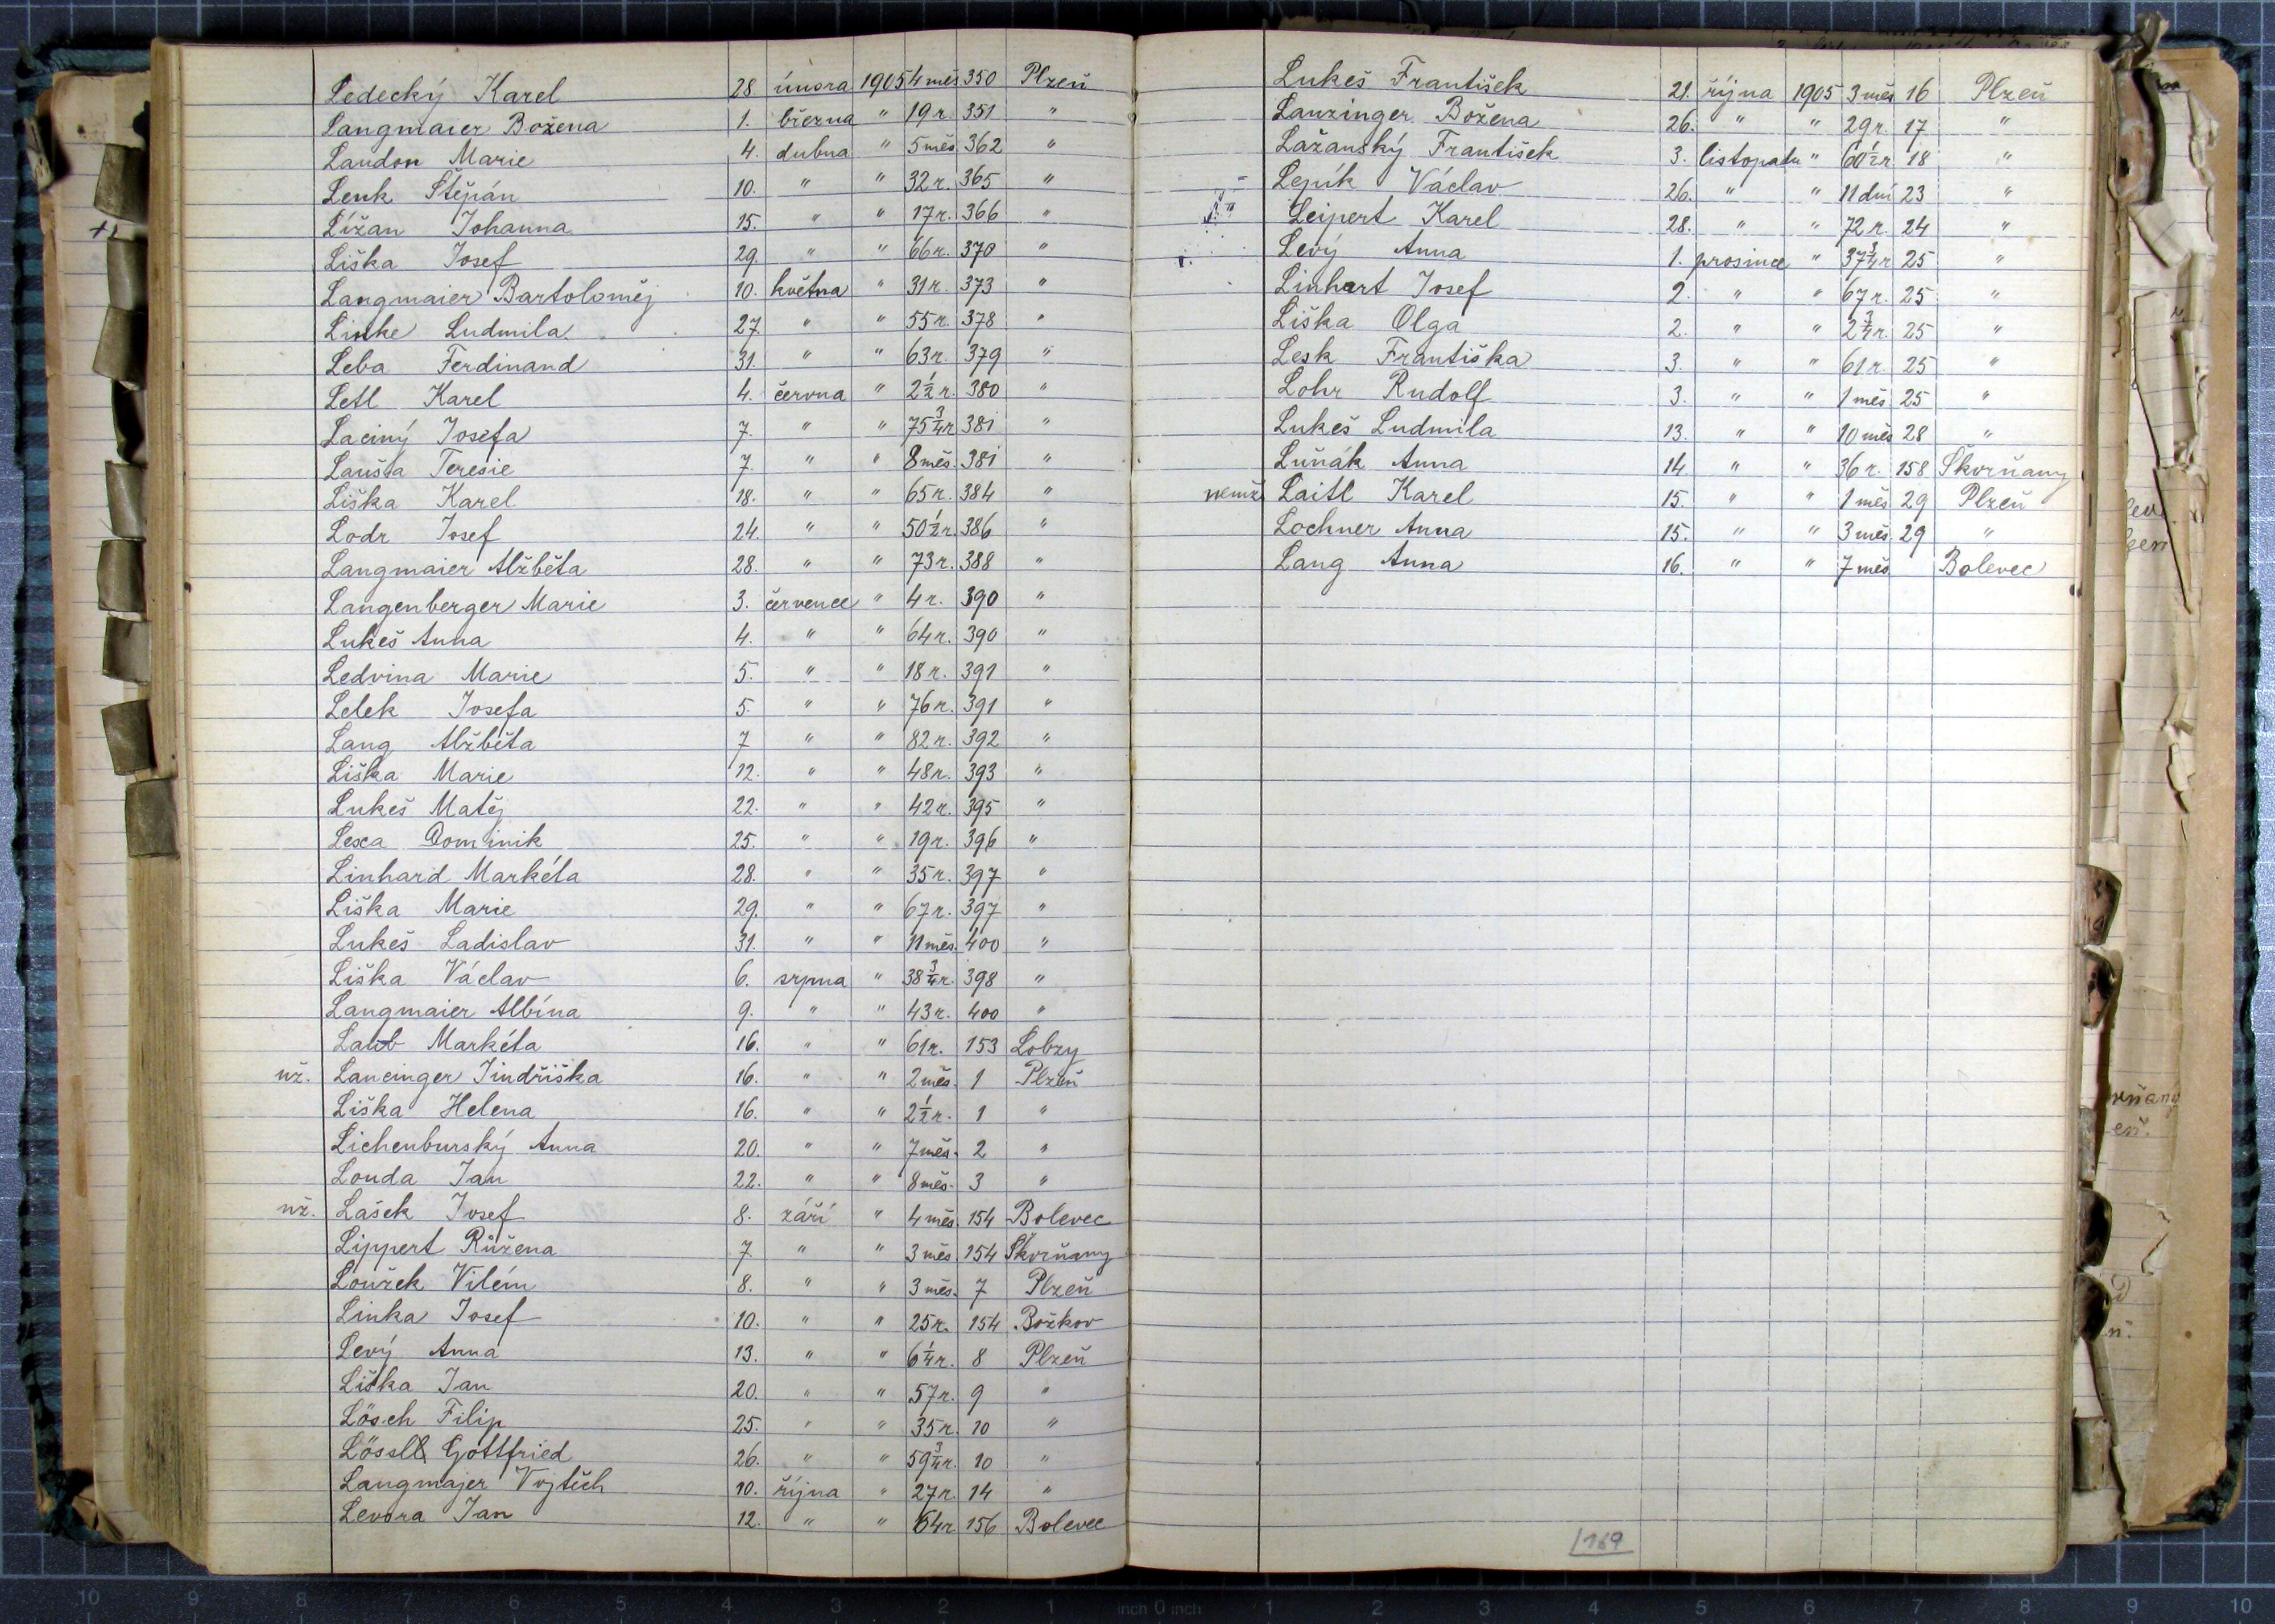 Ledecký Karel 28. února 1905 4 měs 350 Plzeň
Langmaier Božena 1. března " 19 r. 351 "
Landon Marie 4. dubna " 5 měs 362 "
Lenk Štěpán 10. " " 32 r. 365 "
Lížan Johanna 15. " " 17 r. 366 "
Liška Josef 29. " " 66 r. 370 "
Langmaier Bartoloměj 10. května " 31 r. 373 "
Linke Ludmila 27. " " 55 r. 378 "
Leba Ferdinand 31. " " 63 r. 379 "
Letl Karel 4. června " 2 1/2 r. 380 "
Laciný Josefa 7. " " 75 3/4 r 381 "
Teresie 7. " " 8 měs. 381 "
Liška Karel 18. " " 65 r. 384 "
Lodr Josef 24. " " 50 1/2 r. 386 "
Langmaier Alžběta 28. " " 73 r. 388 "
Langenberger Marie 3. července " 4 r. 390 "
Lukeš Anna 4. " " 64 r. 390 "
Ledvina Marie 5. " " 18 r. 391 "
Lelek Josefa 5. " " 76 r. 391 "
Lang Alžběta 7 " " 82 r. 392 "
Liška Marie 12. " " 48 r. 393 "
Lukeš Matěj 22. " " 42 r. 395 "
Lexa Dominik 25. " " 19 r. 396 "
Linhard Markéta 28. " " 35 r. 397 "
Liška Marie 29. " " 67 r. 397 "
Lukeš Ladislav 31. " " 11 měs. 400 "
Liška Václav 6. srpna " 38 3/4 r. 398 "
Langmaier Albína 9. " " 43 r. 400 "
Laub Markéta 16. " " 61 r. 153 Lobzy
nž. Lancinger Jindřiška 16. " " 2 měs. 1 Plzeň
Liška Helena 16. " " 2 1/2 r. 1 "
Lichenburský Anna 20. " " 7 měs. 2 "
Louda Jan 22. " " 8 měs. 3 "
nž. Lašek Josef 8. září " 4 měs. 154 Bolevec
Lippert Růžena 7 " " 3 měs. 154 Skvrňany
Loužek Vilém 8. " " 3 měs. 7 Plzeň
Linka Josef 10. " " 25 r. 154 Božkov
Levý Anna 13. " " 6 1/4 r. 8 Plzeň
Liška Jan 20. " " 57 r. 9 "
Lösch Filip 25. " " 35 r. 10 "
Gottfried 26. " " 59 3/4 r. 10 "
Langmajer Vojtěch 10. října " 27 r. 14 "
Levora Jan 12. " " 64 r 156 Bolevec
Lukeš František 21. října 1905 3 měs 16 Plzeň
Lanzinger Božena 26. " " 29 r. 17 "
Lažanský František 3. listopadu " 60 1/2 r 18 "
Lepík Václav 26. " " 11 dní 23 "
Leipert Karel 28. " " 72 r. 24 "
Levý Anna 1. prosince " 37 3/4 r 25 "
Linhart Josef 2. " " 67 r. 25 "
Liška Olga 2. " " 2 3/4 r. 25 "
Lesk Františka 3. " " 61 r. 25 "
Lohr Rudolf 3. " " 1 měs 25 "
Lukeš Ludmila 13. " " 10 měs 28 "
Luňák Anna 14 " " 36 r. 158 Skvrňany
Laitl Karel 15. " " 1 měs 29 Plzeň
Lochner Anna 15. " " 3 měs. 29 "
Lang Anna 16. " " 7 měs Bolevec
169
10 9 8 7 6 5 4 3 2 1 inch 0 inch 1 2 3 4 5 6 7 8 9 10